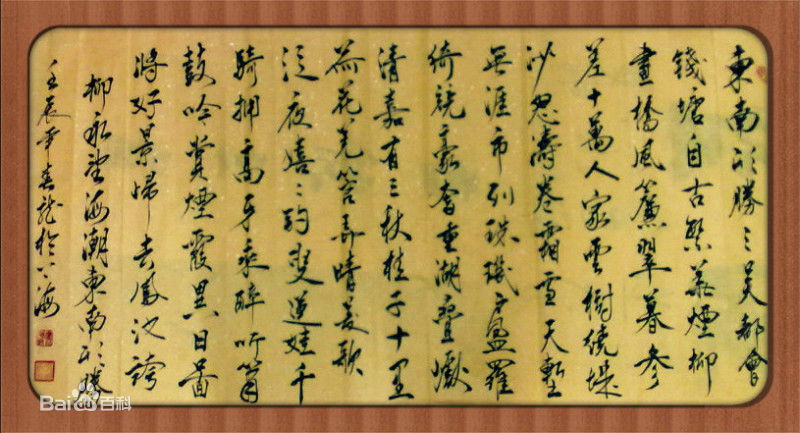 東南形勝三吴都會
錢塘自古繁華煙柳
畫橋風簾翠暮參
差十萬人家雲樹繞堤
沙怒濤卷霜雪天塹
無涯市列珠璣户盈羅
綺競豪奢重湖疊巘
清嘉有三秋桂子十里
荷花羌笛弄晴菱歌
泛夜嬉嬉釣叟蓮娃千
騎擁高牙乘醉听簫
鼓吟賞煙霞異日圖
將好景歸去鳳池誇
柳永望海潮東南形勝
壬辰年春龍於上海
Bai百科